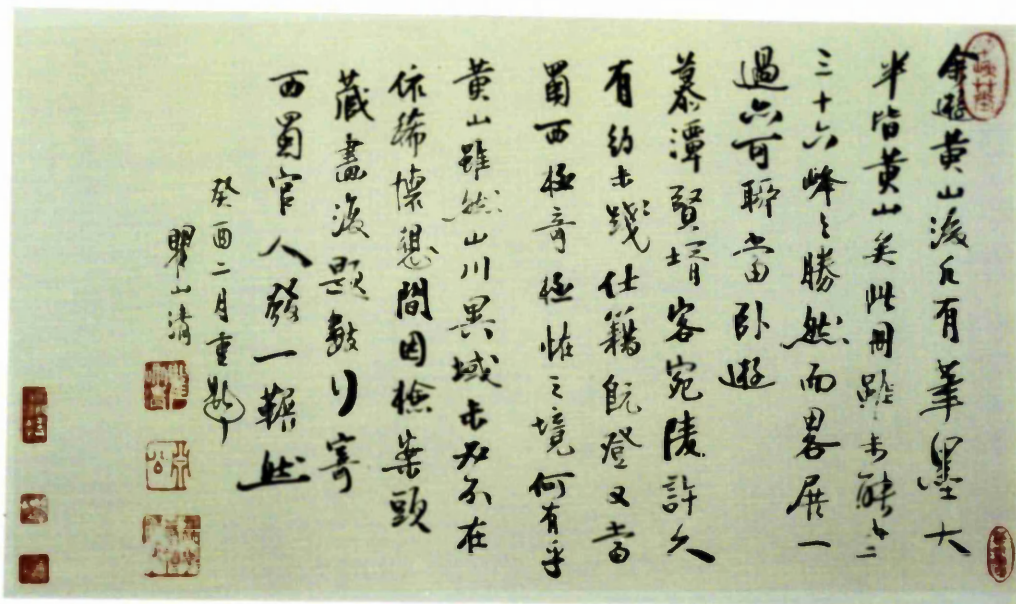 余遊黄山後凡有筆墨大
半皆黄山矣此册雖未能
三十六峰之勝然而畧展一
過亦可聊當卧遊
慕潭賢壻客宛陵許久
有約未踐仕籍既登又當
蜀西極奇極怪之境何有乎
黄山雖然山川異域未必不在
依稀懷想間因檢案頭
藏畫復題數行寄
西蜀官人發一囅然
癸酉二月重題
瞿山清